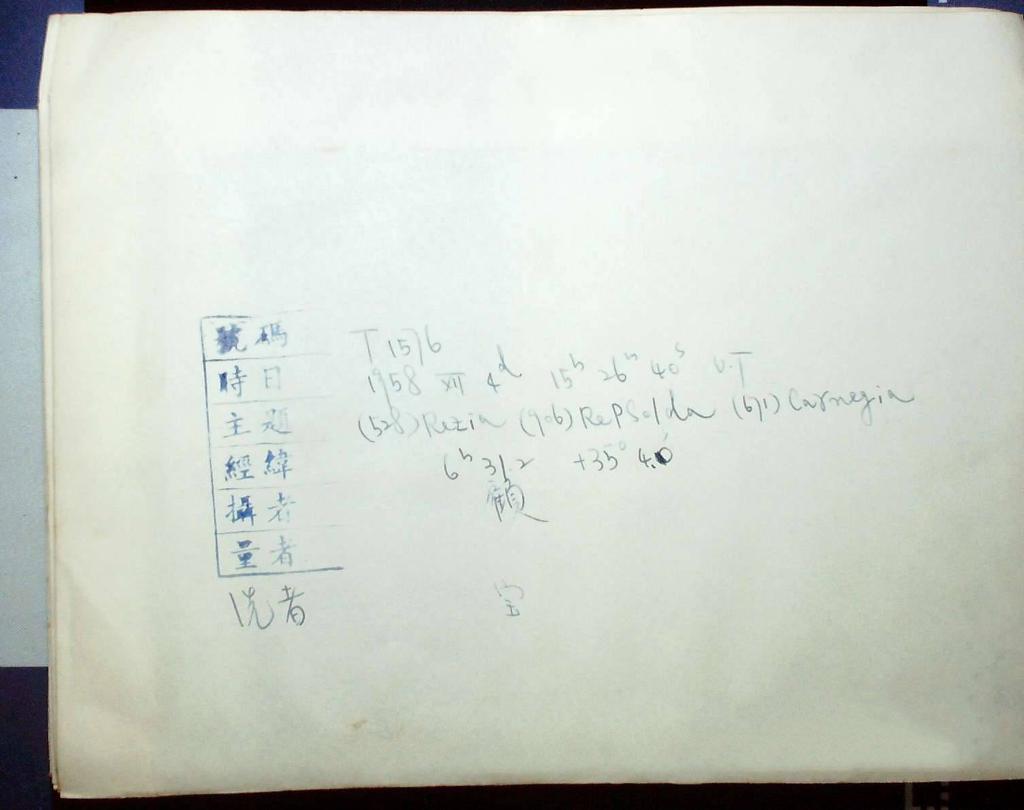 號碼 T 1576
時日 1958 XII 4d 15h 26m 40s U.T
主題 (528) Rezia (906) RePSolda (671) Carnegia
經緯 6h 31.2 +35° 4.0'
攝者 顧
量者
洗者 宝